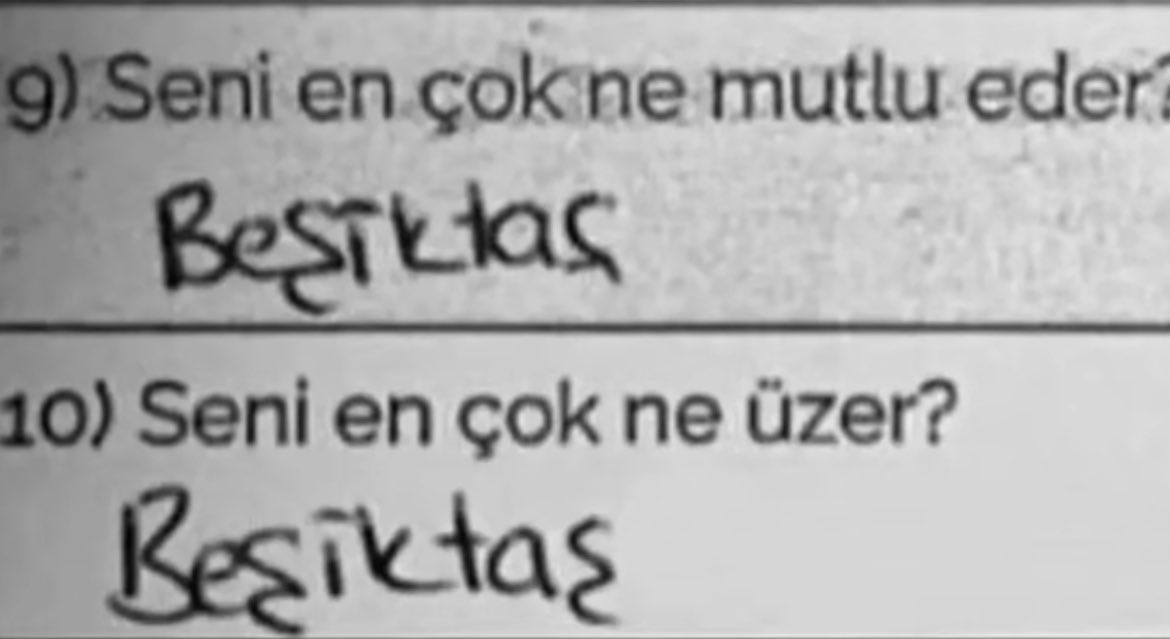 9) Seni en çok ne mutlu eder?
Beşiktaş
10) Seni en çok ne üzer?
Beşiktaş